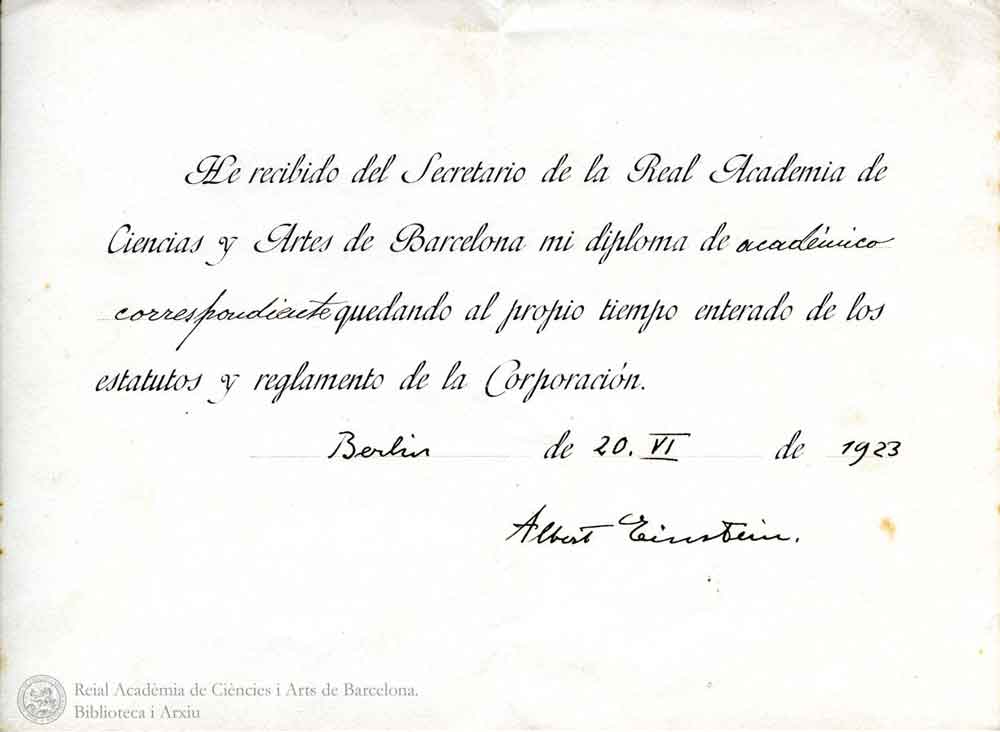 He recibido del Secretario de la Real Academia de
Ciencias y Artes de Barcelona mi diploma de académico
correspondiente quedando al propio tiempo enterado de los
estatutos y reglamento de la Corporación.
Berlin de 20. VI de 1923
Albert Einstein.
Reial Acadèmia de Ciències i Arts de Barcelona.
Biblioteca i Arxiu